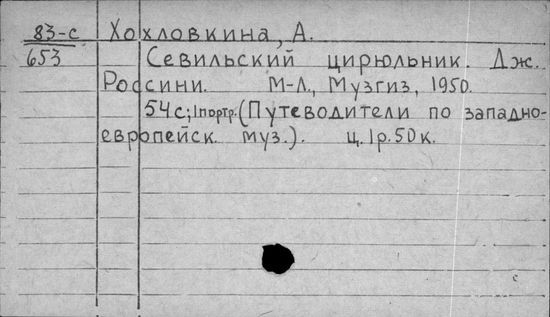 83-с Хохловкина, А.
653 Севильский цирюльник. Дж.
Россини. М-Л., Музгиз, 1950.
54с; 1 портр. (Путеводители по западно-
европейск. муз.). ц. 1р. 50к.
с